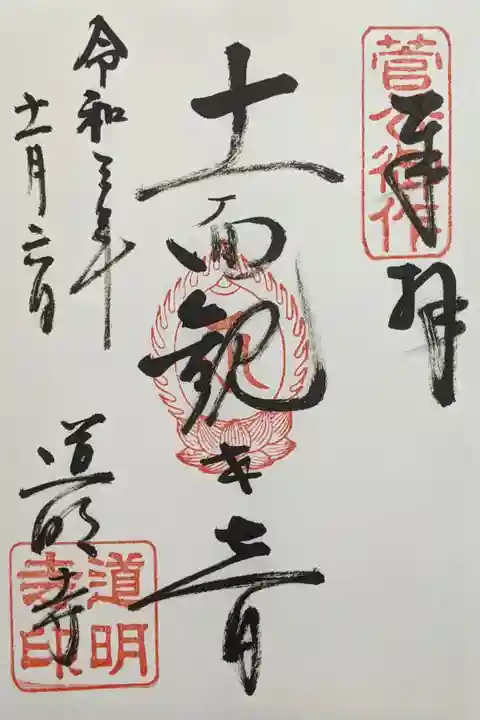 菅公御作
奉拝
十一面観世音
令和三年
十一月
道明寺
道明寺印